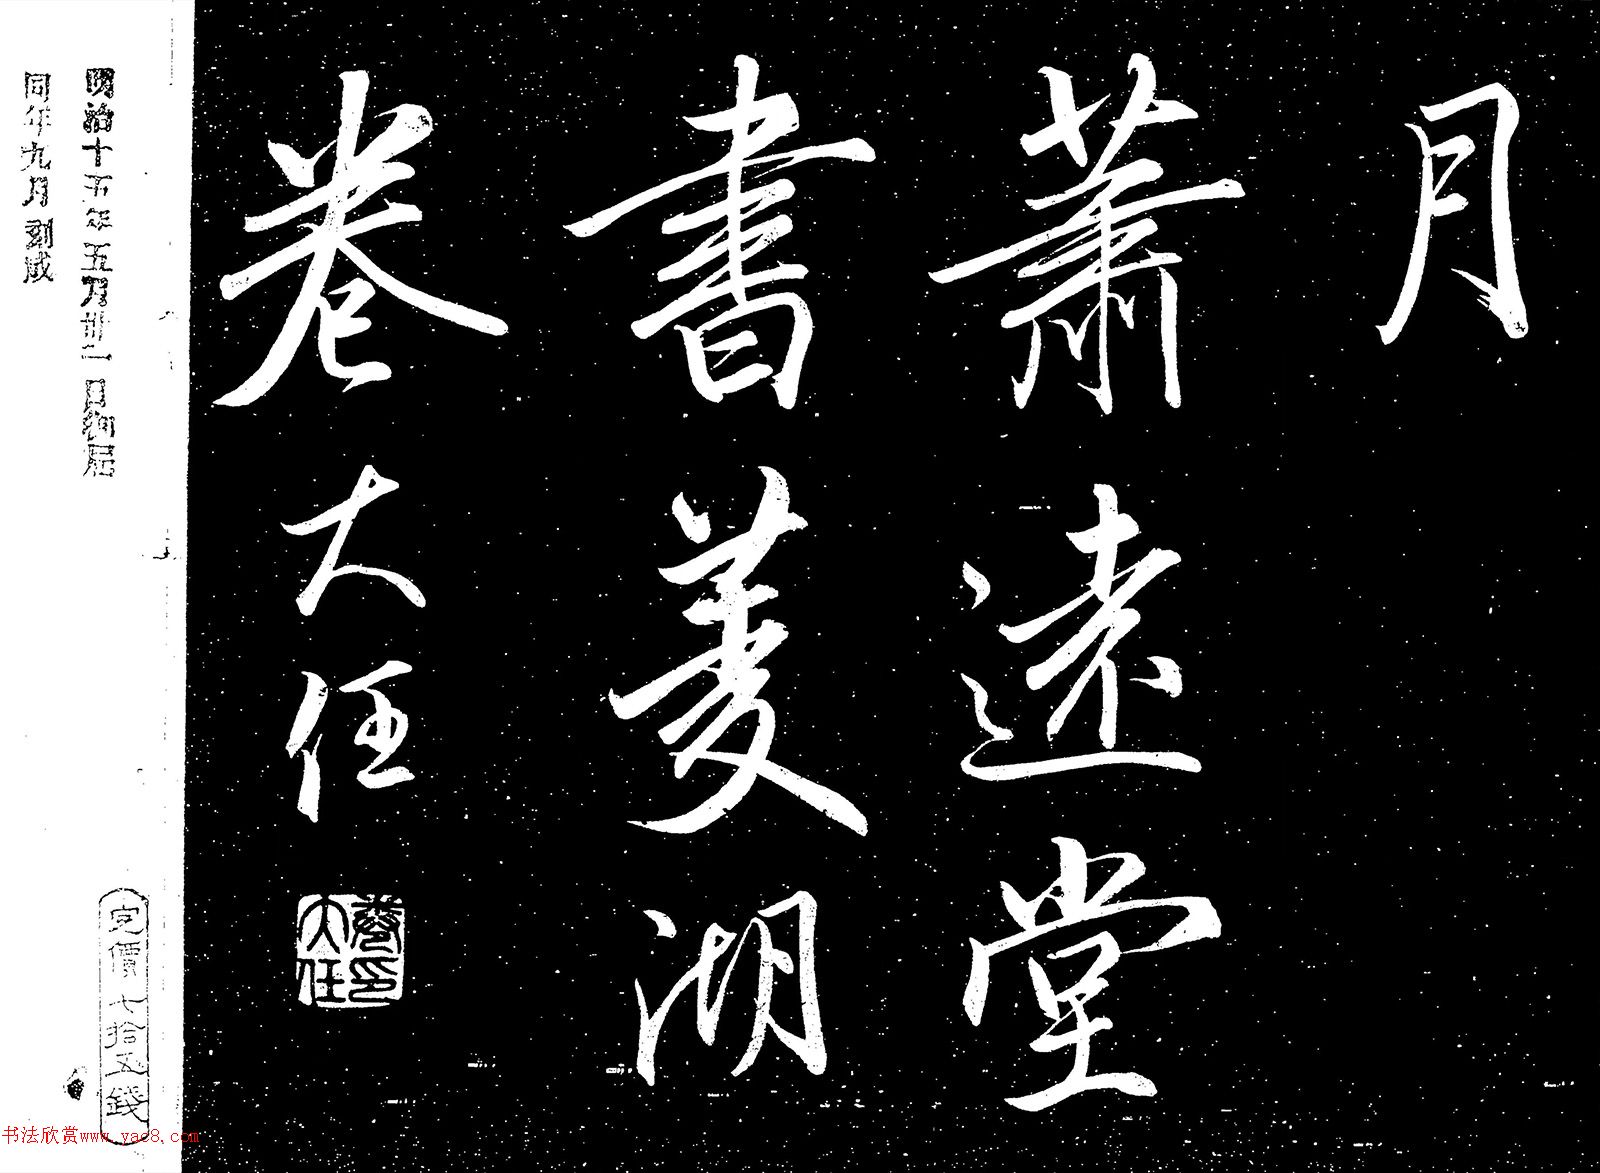 月
蕭遠堂
書菱湖
卷大任
卷印大任
明治十五年五月廿二日御届
同年九月刻成
定價七拾五錢
书法欣赏www.yac8.com